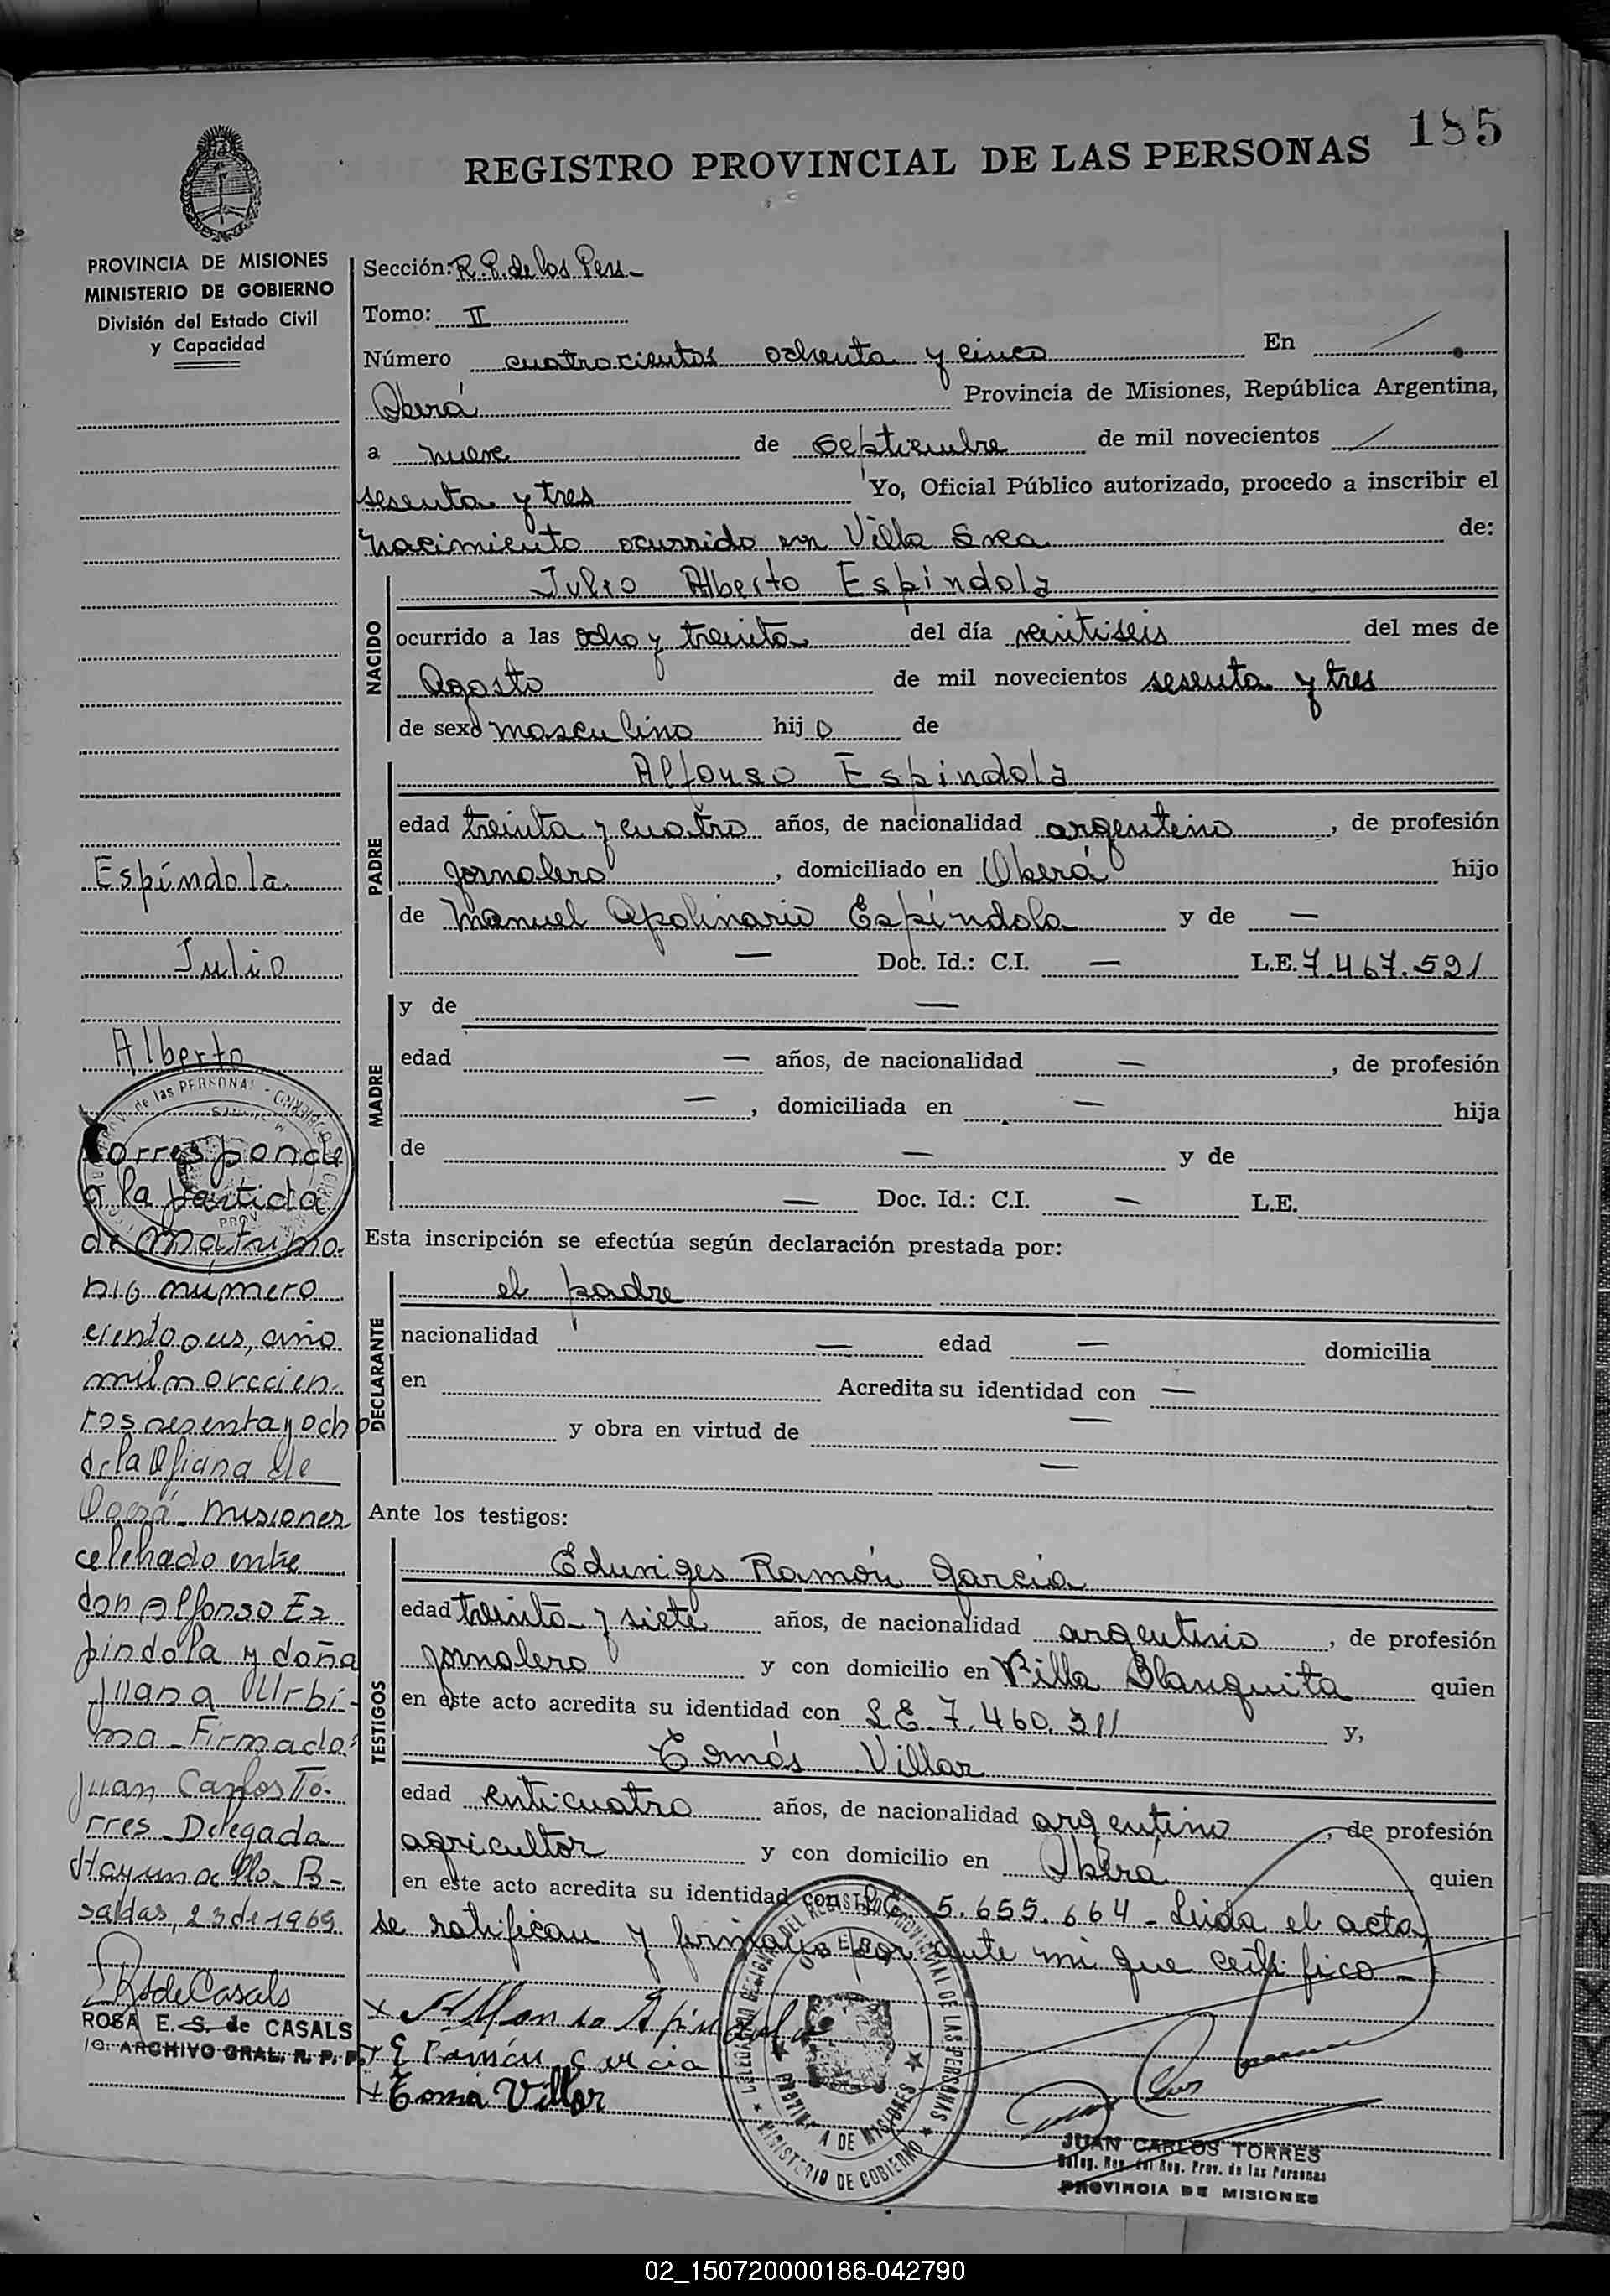 185
REGISTRO PROVINCIAL DE LAS PERSONAS
PROVINCIA DE MISIONES
MINISTERIO DE GOBIERNO
División del Estado Civil
y Capacidad
Espíndola
Julio
Alberto
Corresponde
a la partida
de matrimo-
nio número
ciento, año
mil novecien-
tos sesenta y ocho
de la Oficina de
Oberá - Misiones
celebrado entre
don Alfonso Es
píndola y doña
Juana Urbi-
na - Firmado:
Juan Carlos To-
rres - Delegado
Hay un sello - Po-
sadas, 23 de 1969
RSdeCasals
ROSA E. S. de CASALS
ARCHIVO GRAL. R. P. P.
Sección: R. P. de los Pers -
Tomo: II
Número cuatrocientos ochenta y cinco En
Oberá Provincia de Misiones, República Argentina,
a nueve de septiembre de mil novecientos
sesenta y tres Yo, Oficial Público autorizado, procedo a inscribir el
nacimiento ocurrido en Villa de:
NACIDO
Julio Alberto Espíndola
ocurrido a las ocho y treinta del día veintiséis del mes de
Agosto de mil novecientos sesenta y tres
de sexo masculino hijo de
PADRE
Alfonso Espíndola
edad treinta y cuatro años, de nacionalidad argentino, de profesión
jornalero, domiciliado en Oberá hijo
de Manuel Apolinario Espíndola y de —
— Doc. Id.: C.I. — L.E. 7.467.521
MADRE
y de —
edad — años, de nacionalidad —, de profesión
—, domiciliada en — hija
de — y de
— Doc. Id.: C.I. — L.E.
Esta inscripción se efectúa según declaración prestada por:
DECLARANTE
el padre
nacionalidad — edad — domicilia
en Acredita su identidad con —
y obra en virtud de —
—
Ante los testigos:
TESTIGOS
Eduviges Ramón García
edad treinta y siete años, de nacionalidad argentino, de profesión
jornalero y con domicilio en Villa Blanquita quien
en este acto acredita su identidad con L.E. 7.460.311 y,
Tomás Villar
edad enticuatro años, de nacionalidad argentino, de profesión
agricultor y con domicilio en Oberá quien
en este acto acredita su identidad con L.E. 5.655.664 - Leída el acta
se ratifican y firman por ante mi que certifico -
x Alfonso Espindola
x E Ramón Garcia
x Toma Villar
DELEGACION REGIONAL DEL REGISTRO PROVINCIAL DE LAS PERSONAS
OBERA
PROVINCIA DE MISIONES
MINISTERIO DE GOBIERNO
JUAN CARLOS TORRES
Deleg. Reg. del Reg. Prov. de las Personas
PROVINCIA DE MISIONES
02_150720000186-042790